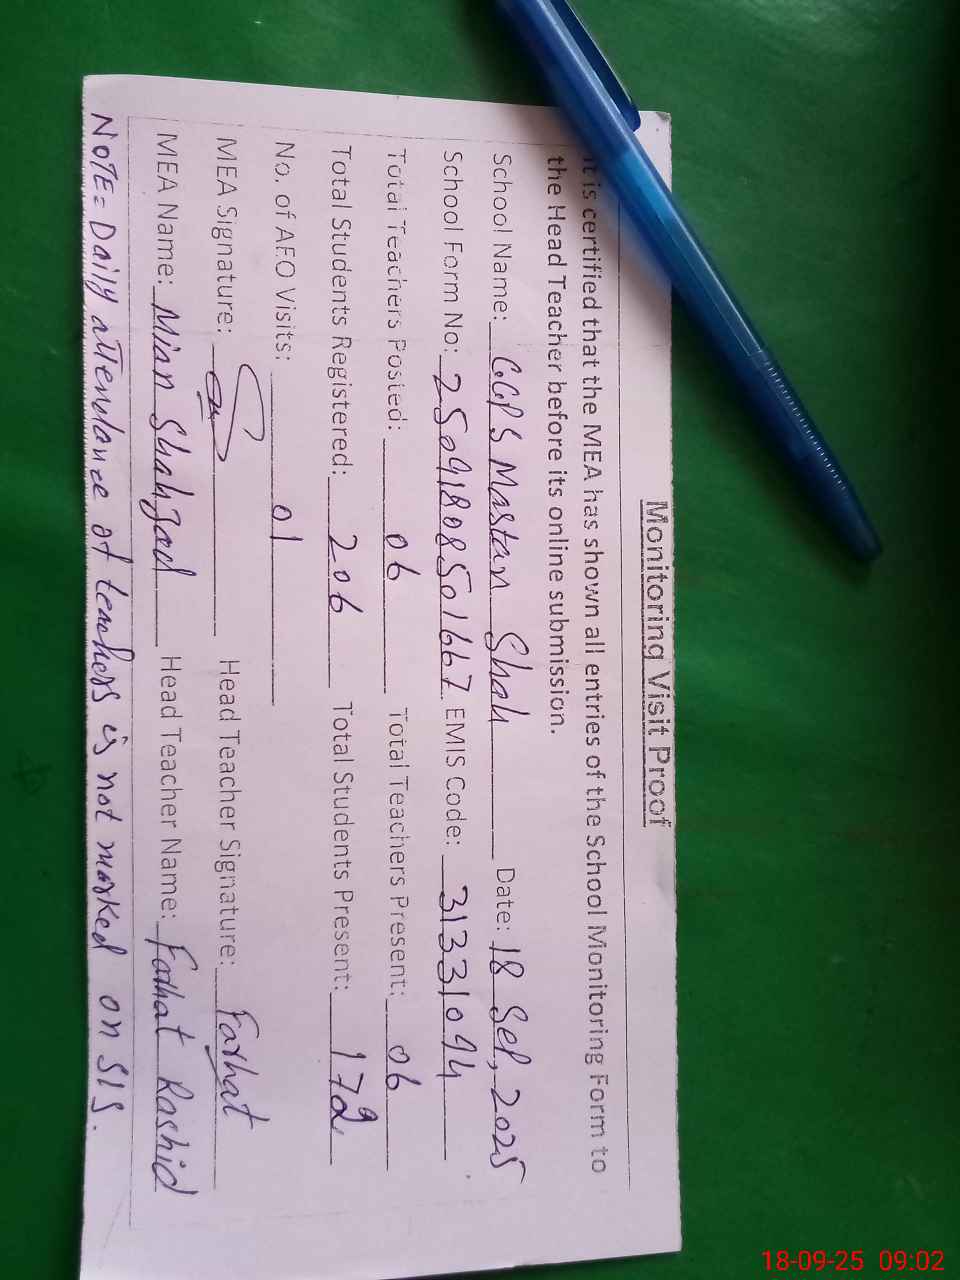 Monitoring Visit Proof
It is certified that the MEA has shown all entries of the School Monitoring Form to
the Head Teacher before its online submission.
School Name: GGPS Mastan Shah Date: 18 Sep, 2025
School Form No: 25091808501667 EMIS Code: 31331094
Total Teachers Posted: 06 Total Teachers Present: 06
Total Students Registered: 206 Total Students Present: 172
No. of AEO Visits: 01
MEA Signature: Head Teacher Signature: Farhat
MEA Name: Mian Shahzad Head Teacher Name: Farhat Rashid
NOTE= Daily attendance of teachers is not marked on SIS.
18-09-25 09:02